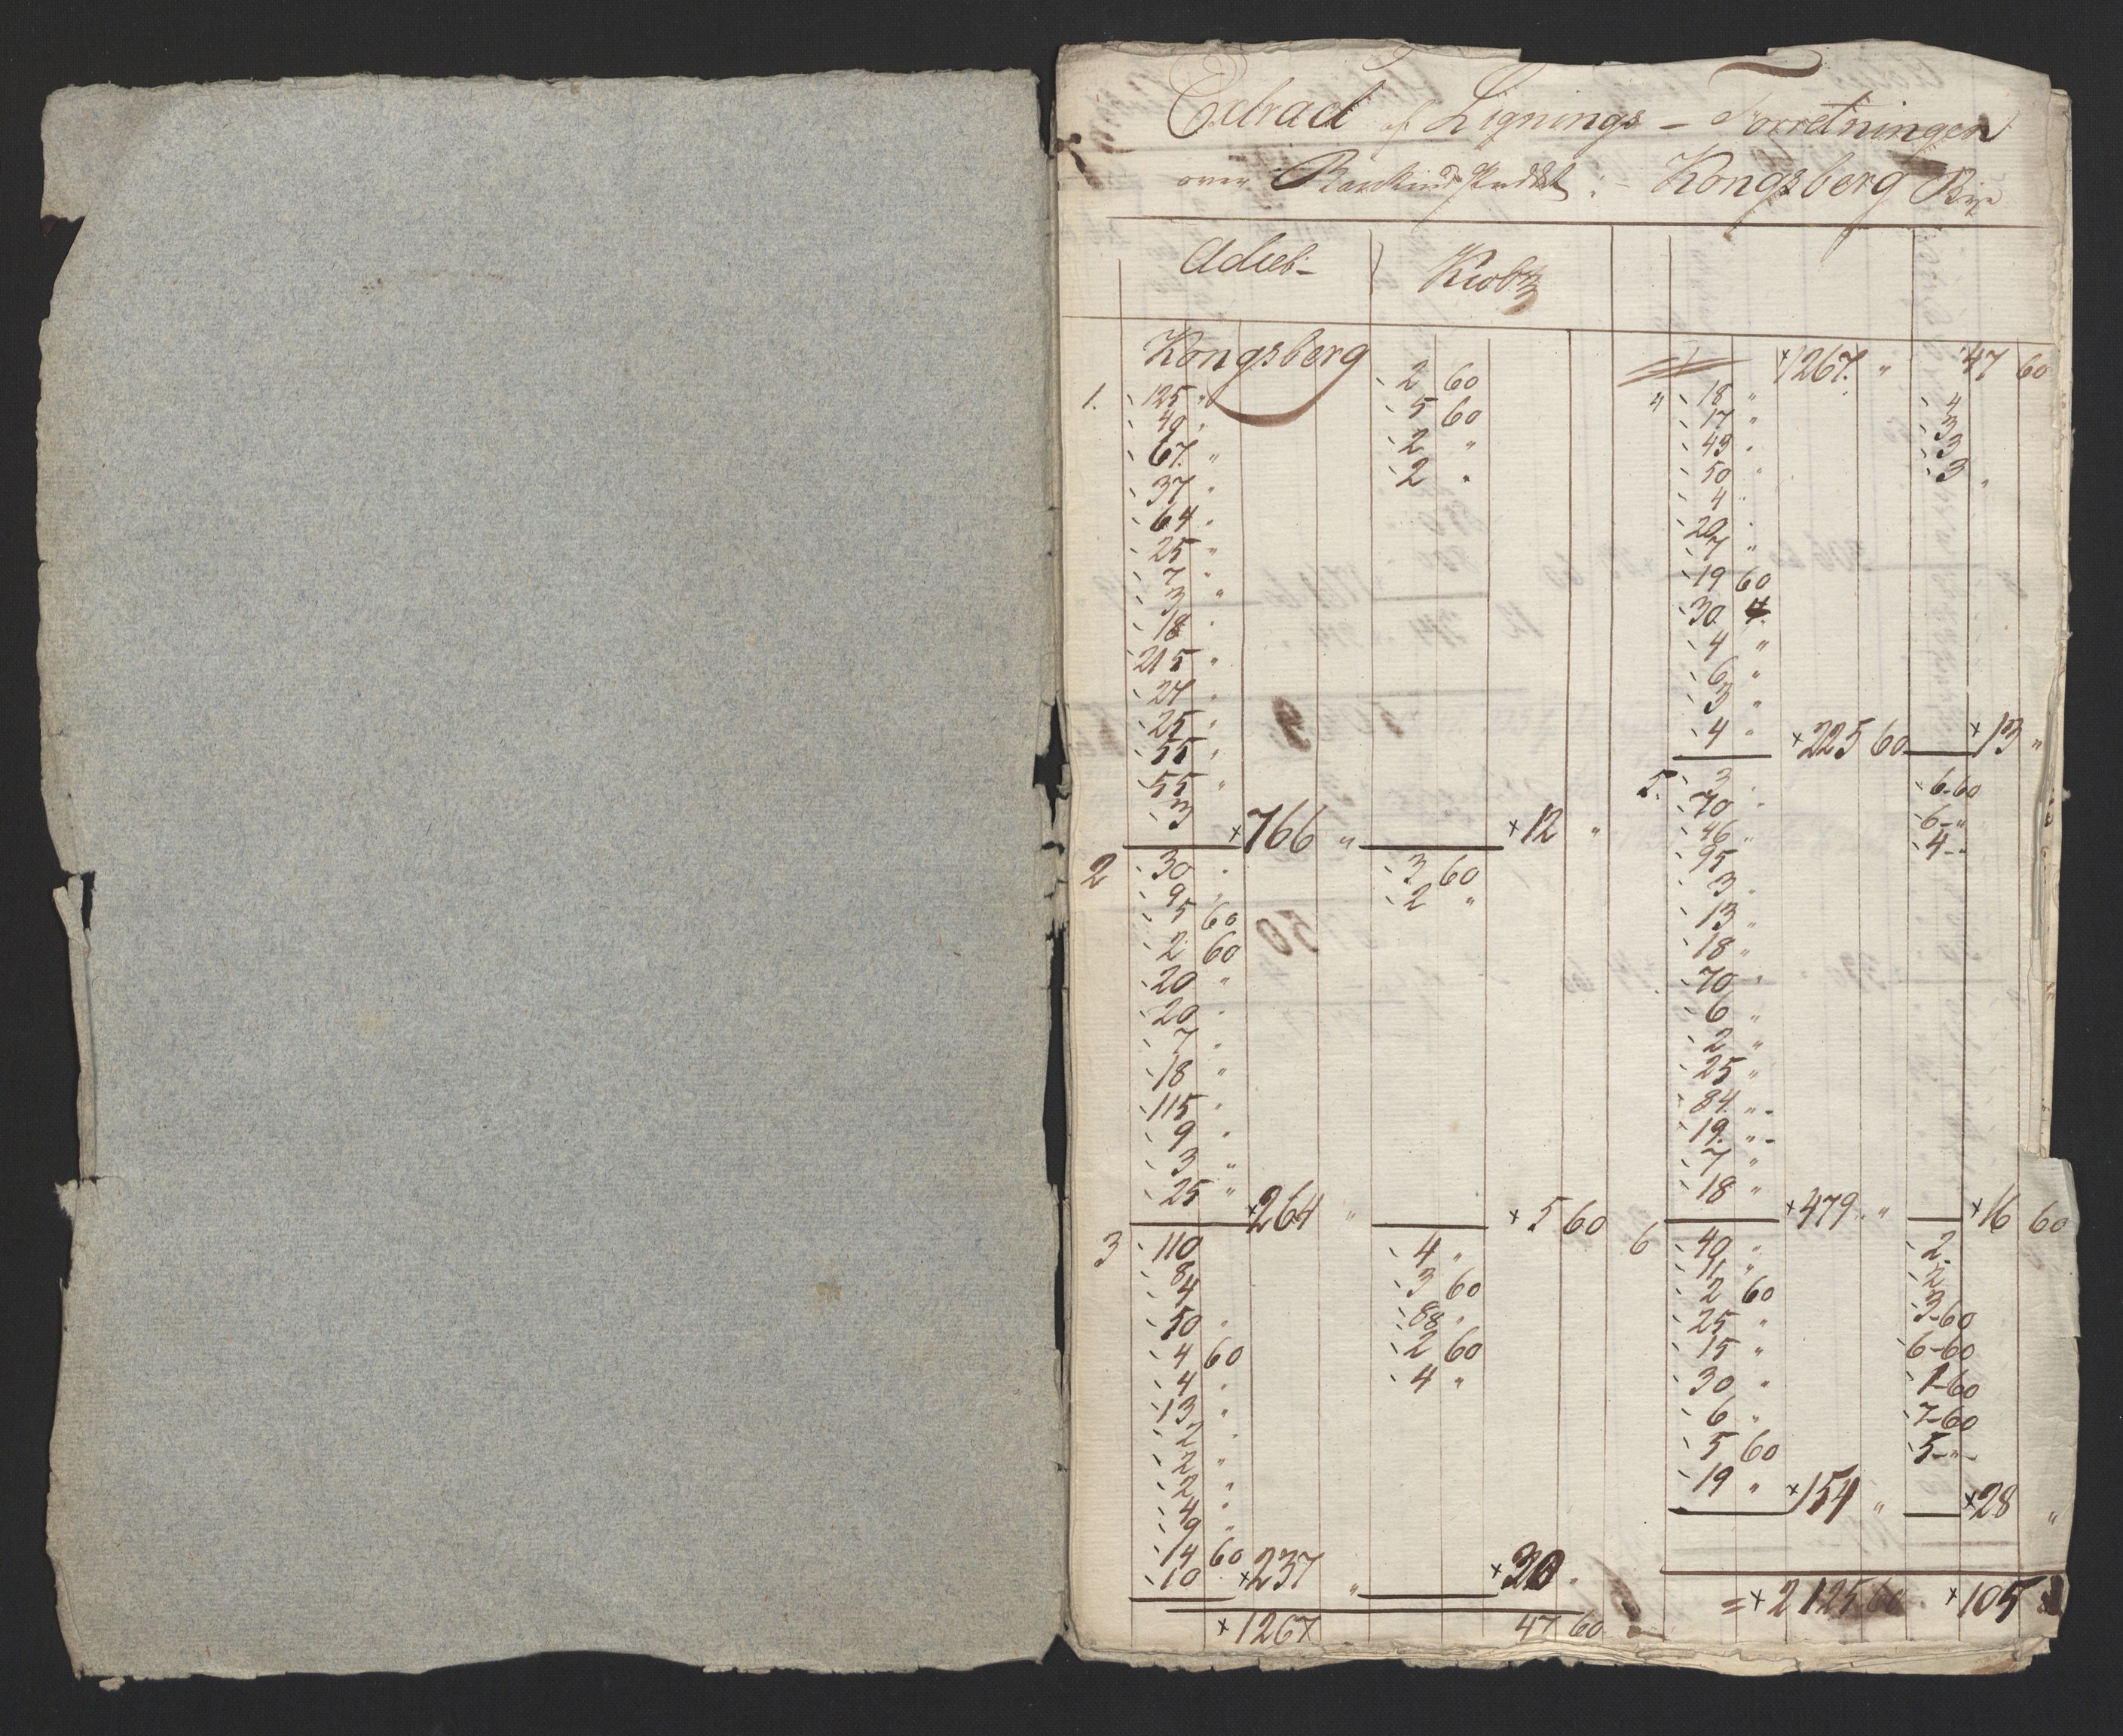 Extract af Lignings - Forretningen
over Kongsberg Bye
Kongsberg
1. 125 "
40 "
67 "
37 "
64 "
25 "
7 "
3 "
18 "
215 "
27 "
25 "
55 "
55 "
3 766 "
2 60
5 60
2 "
2 "
12 "
2 30 "
9 "
5 60
2 60
20 "
20 "
7 "
18 "
115 "
9 "
3 "
25 " 264 "
3 60
2 "
5 60
3 110
8
4
50 "
4 60
4 "
13 "
2 "
2 "
2 "
4 "
9 "
14 60
10 237 "
4 "
3 60
88 "
2 60
4 "
30 "
1267 47 60
1267 " 47 60
4 18 "
17 "
49 "
50 "
4 "
20 "
7 "
19 60
30
4 "
6 "
3 "
4 " 225 60
4
3
3
3 "
13 "
5. 3 "
70 "
46 "
95
3 "
13 "
18 "
70 "
6 "
2 "
25 "
84 " -
19 " -
7 "
18 " 479 "
6-60
6-"
4--
16 60
6 40 "
11 "
2 60
25 "
15 "
30 "
6 "
5 60
19 " 154 "
2
2
3-60
6-60
1-60
7-60
5-"-
28 "
= 2125 60 105